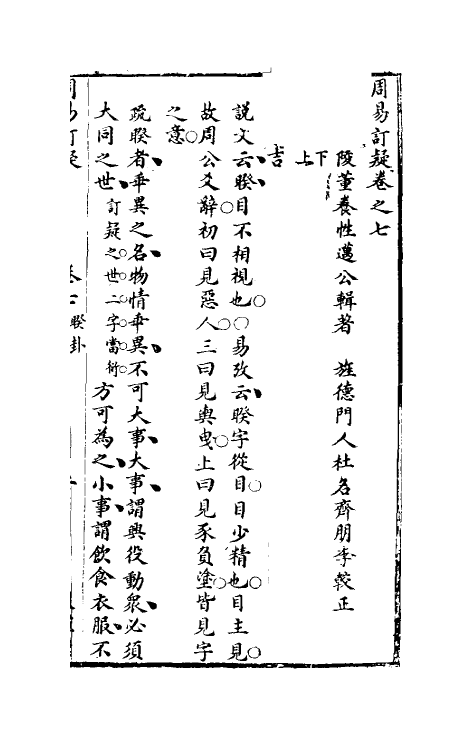 周易訂疑卷之七
陵董養性邁公輯著　旌德門人杜名齊朋李較正
下
上
吉
説文云睽目不相視也○易攷云睽字從目目少精也目主見
故周公爻辭初曰見惡人三曰見輿曳上曰見豕負塗皆見字
之意
疏睽者乖異之名物情乖異不可大事大事謂興役動衆必須
大同之世訂疑之世二字當衍方可為之小事謂飲食衣服不
周易訂疑　卷七睽卦